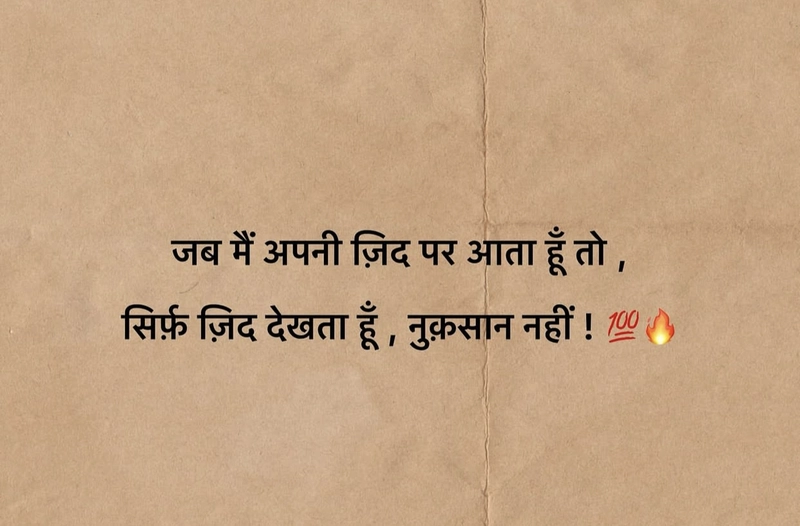 जब मैं अपनी ज़िद पर आता हूँ तो ,
सिर्फ़ ज़िद देखता हूँ , नुक़सान नहीं ! 💯🔥